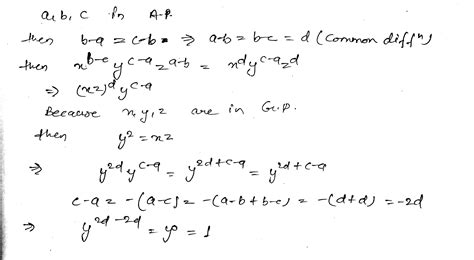 a, b, c in A.P.
then b-a = c-b = ⇒ a-b = b-c = d (common diffⁿ)
then x^{b-c} y^{c-a} z^{a-b} = x^d y^{c-a} z^d
⇒ (xz)^d y^{c-a}
Because x, y, z are in G.P.
then y² = xz
⇒ y^{2d} y^{c-a} = y^{2d+c-a} = y^{2d+c-a}
c-a = -(a-c) = -(a-b+b-c) = -(d+d) = -2d
⇒ y^{2d-2d} = y⁰ = 1